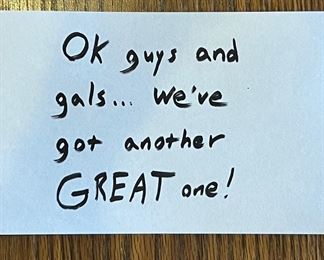 OK guys and
gals... we've
got another
GREAT one!